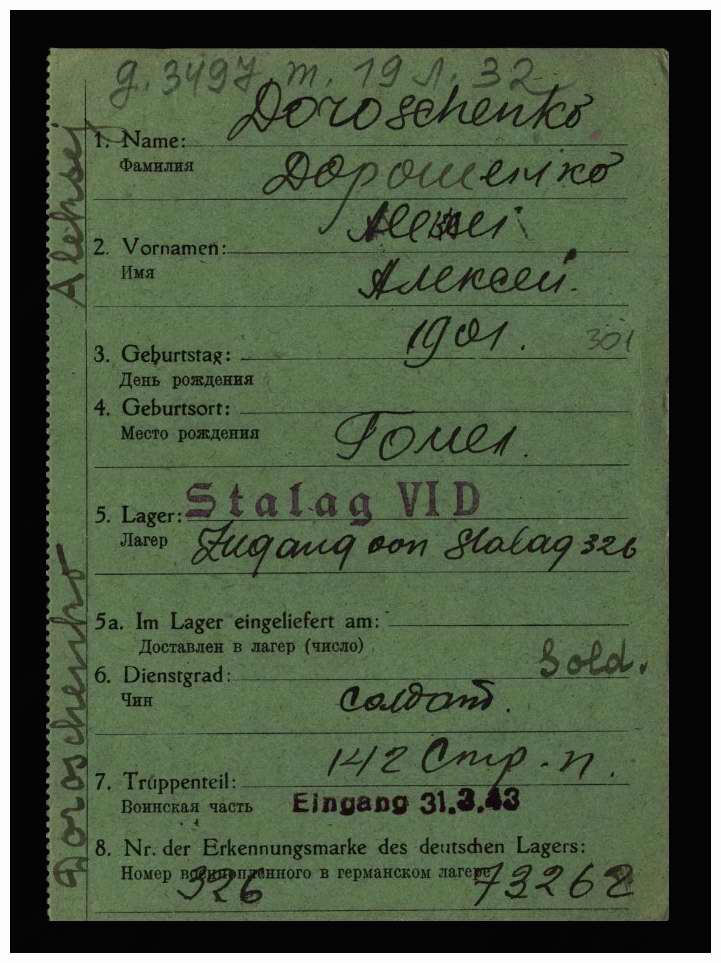 д. 3497, т. 19 л. 32
Doroschenko
1. Name:
Фамилия
Дорошенко
2. Vornamen:
Имя
Алексей.
1901.
301
3. Geburtstag:
День рождения
4. Geburtsort:
Место рождения
Гомел.
Stalag VI D
5. Lager:
Лагер
Zugang von Stalag 326
5a. Im Lager eingeliefert am:
Доставлен в лагер (число)
Sold.
6. Dienstgrad:
Чин
Солдат.
142 Стр. п.
7. Truppenteil:
Воинская часть
Eingang 31.3.43
8. Nr. der Erkennungsmarke des deutschen Lagers:
Номер военнопленного в германском лагере
326 73268
Doroschenko Aleksej